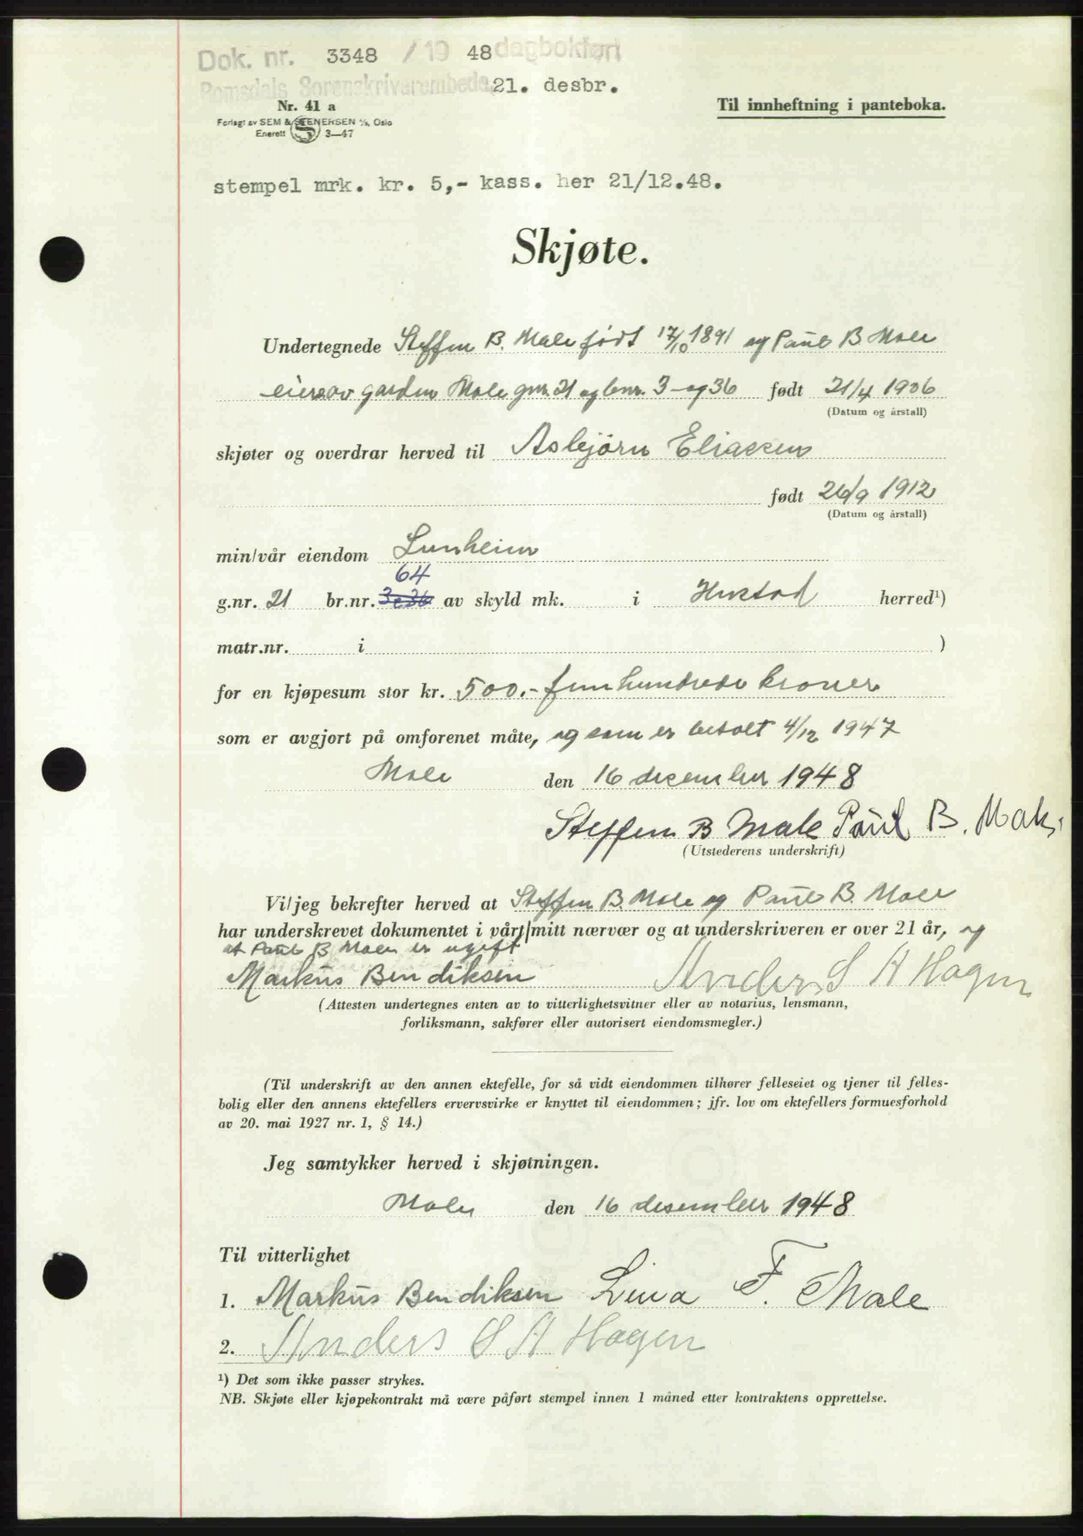 Dok. nr. 3348 / 19 48 dagbokført
Romsdals Sorenskriverembede 21. desbr.
Nr. 41 a
Til innheftning i panteboka.
Forlagt av SEM & STENERSEN A/S, Oslo
Enerett 3—47
stempel mrk. kr. 5,- kass. her 21/12.48.
Skjøte.
Undertegnede Steffen B. Male født 17/10 1891 og Paul B Male
eiere av garden Male gnr. 21 og bnr. 3 og 36 født 21/4 1906
(Datum og årstall)
skjøter og overdrar herved til Asbjørn Eliassen
født 26/9 1912
(Datum og årstall)
min/vår eiendom Lunheim
64
g.nr. 21 br.nr. 3 o 36 av skyld mk. i Hustad herred¹)
matr.nr. i )
for en kjøpesum stor kr. 500.- femhundrede kroner
som er avgjort på omforenet måte, og som er betalt 4/12 1947
Male den 16 desember 1948
Steffen B Male Paul B. Male
(Utstederens underskrift)
Vi/jeg bekrefter herved at Steffen B. Male og Paul B. Male
har underskrevet dokumentet i vårt/mitt nærvær og at underskriveren er over 21 år, og
at Paul B Male er ugift
Markus Bendiksen Anders S A Hagen
(Attesten undertegnes enten av to vitterlighetsvitner eller av notarius, lensmann,
forliksmann, sakfører eller autorisert eiendomsmegler.)
(Til underskrift av den annen ektefelle, for så vidt eiendommen tilhører felleseiet og tjener til felles-
bolig eller den annens ektefellers ervervsvirke er knyttet til eiendommen; jfr. lov om ektefellers formuesforhold
av 20. mai 1927 nr. 1, § 14.)
Jeg samtykker herved i skjøtningen.
Male den 16 desember 1948
Til vitterlighet
1. Markus Bendiksen Lina F. Male
2. Anders S A Hagen
¹) Det som ikke passer strykes.
NB. Skjøte eller kjøpekontrakt må være påført stempel innen 1 måned etter kontraktens opprettelse.